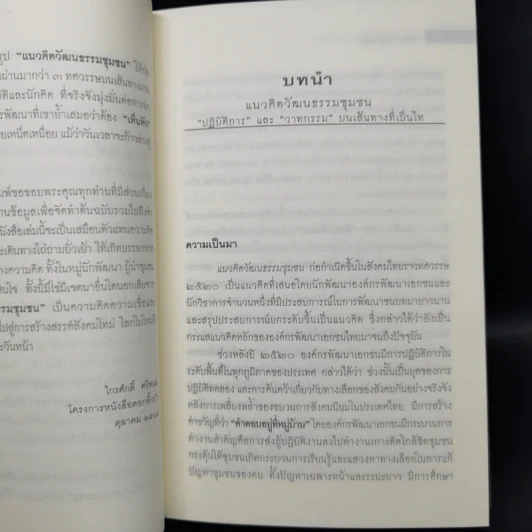 รูป "แนวคิดวัฒนธรรมชุมชน" ได้
ผ่านมากว่า ๓ ทศวรรษบนเส้นทางงาน
และนักคิด ที่จริงจังมุ่งมั่นต่อการ
พัฒนาที่เขาย้ำเสมอว่าต้อง
เหน็ดเหนื่อย แม้ว่าวันเวลาจะ
พ์ขอขอบพระคุณทุกท่านที่มีส่วน
านข้อมูลเพื่อจัดทำต้นฉบับรวมไปถึง
นังสือเล่มนี้จะเป็นเสมือนตัวแทนความคิด
ะเดินทางไถ่ถามยั่วเย้า ให้เกิดบรรยากาศ
างความคิด ทั้งในหมู่นักพัฒนา ผู้นำชุมชน
นใจ ทั้งนี้มิใช่มีเจตนายืนโดดเอกเสียจาก
รรมชุมชน" เป็นความคิดความเชื่อ
ไปสู่การสร้างสรรค์สังคมใหม่ โลกใหม่
ะวันหน้า
ไกรศักดิ์
โครงการหนังสือ
ตุลาคม
บทนำ
แนวคิดวัฒนธรรมชุมชน
"ปฏิบัติการ" และ "วาทกรรม" บนเส้นทางที่เป็นไท
ความเป็นมา
แนวคิดวัฒนธรรมชุมชน ก่อกำเนิดขึ้นในสังคมไทยราวทศวรรษ
๒๕๒๐ เป็นแนวคิดที่เสนอโดยนักพัฒนาองค์กรพัฒนาเอกชนและ
นักวิชาการจำนวนหนึ่งที่มีประสบการณ์ในการพัฒนาชนบทมายาวนาน
และสรุปประสบการณ์ยกระดับขึ้นเป็นแนวคิด ซึ่งกล่าวได้ว่ายังเป็น
กระแสแนวคิดหลักขององค์กรพัฒนาเอกชนไทยมาจนถึงปัจจุบัน
ช่วงหลังปี ๒๕๒๐ องค์กรพัฒนาเอกชนมีการปฏิบัติการใน
ระดับพื้นที่ในทุกภูมิภาคของประเทศ กล่าวได้ว่า ช่วงนั้นเป็นยุคของการ
ปฏิบัติทดลอง และการค้นคว้าเกี่ยวกับทางเลือกของสังคมกันอย่างจริงจัง
หลังการเพลี่ยงพล้ำของขบวนการสังคมนิยมในประเทศไทย มีการสร้าง
คำขวัญที่ว่า "คำตอบอยู่ที่หมู่บ้าน" โดยองค์กรพัฒนาเอกชนมีกระบวนการ
ทำงานสำคัญคือการส่งผู้ปฏิบัติงานลงไปทำงานเกาะติดใกล้ชิดชุมชน
กระตุ้นให้ชุมชนเกิดกระบวนการเรียนรู้และแสวงหาทางเลือกในการแก้
ปัญหาชุมชนของตน ทั้งปัญหาเฉพาะหน้าและระยะยาว มีการศึกษา